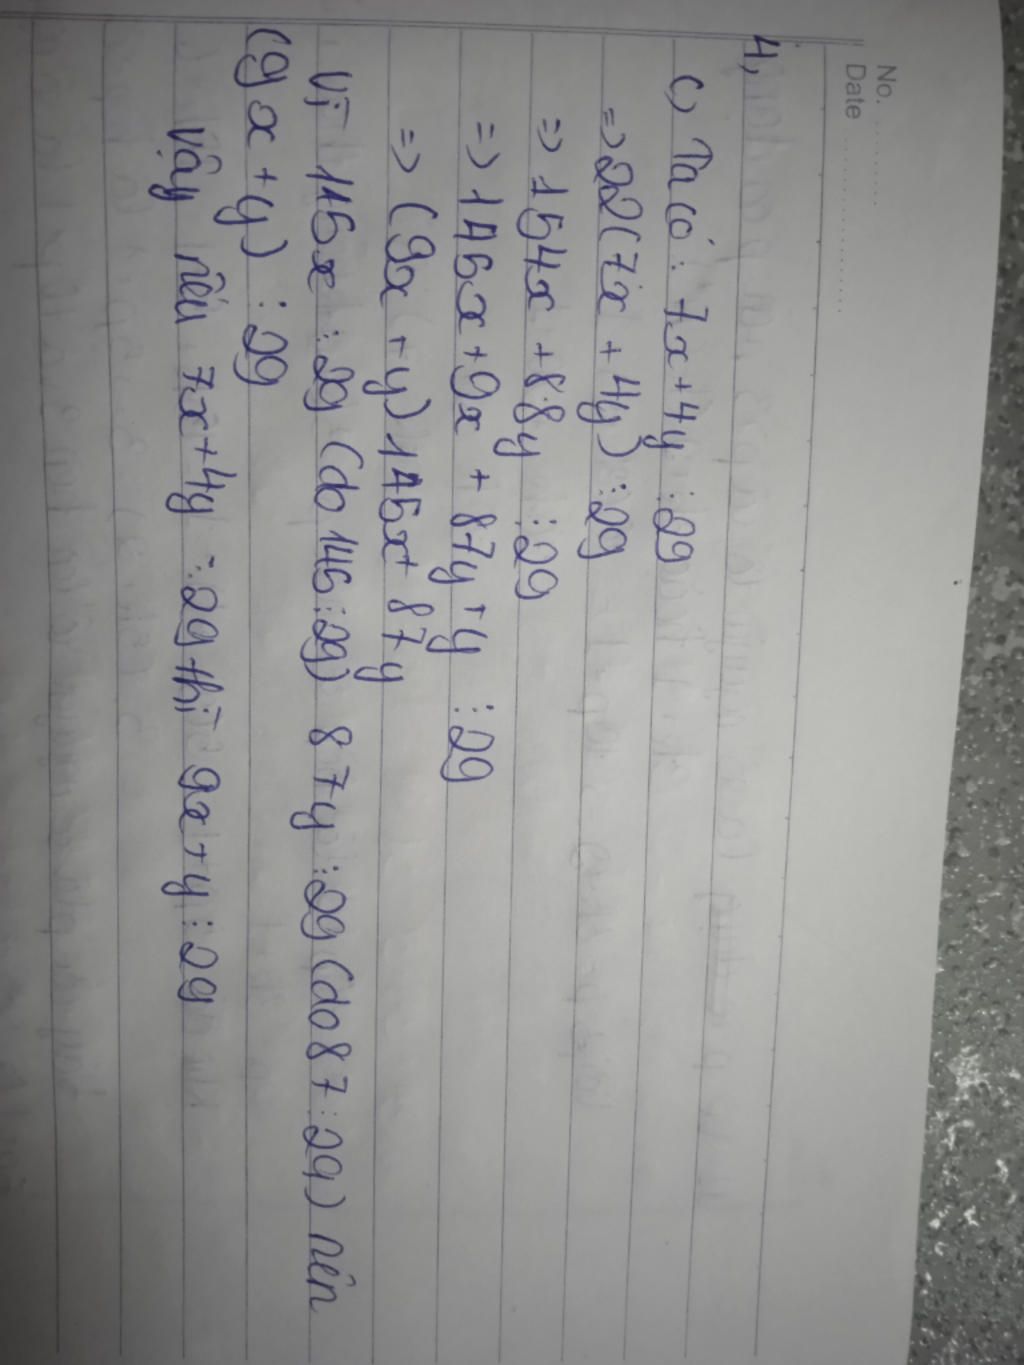 No. ...........
Date ....................
4,
c) Ta có : 7x+4y ⋮ 29
=> 22(7x + 4y) ⋮ 29
=> 154x + 88y ⋮ 29
=> 145x + 9x + 87y + y ⋮ 29
=> (9x + y) 145x + 87y
Vì 145x ⋮ 29 (do 145 ⋮ 29) 87y ⋮ 29 (do 87 ⋮ 29) nên
(9x + y) ⋮ 29
Vậy nếu 7x+4y ⋮ 29 thì 9x+y ⋮ 29